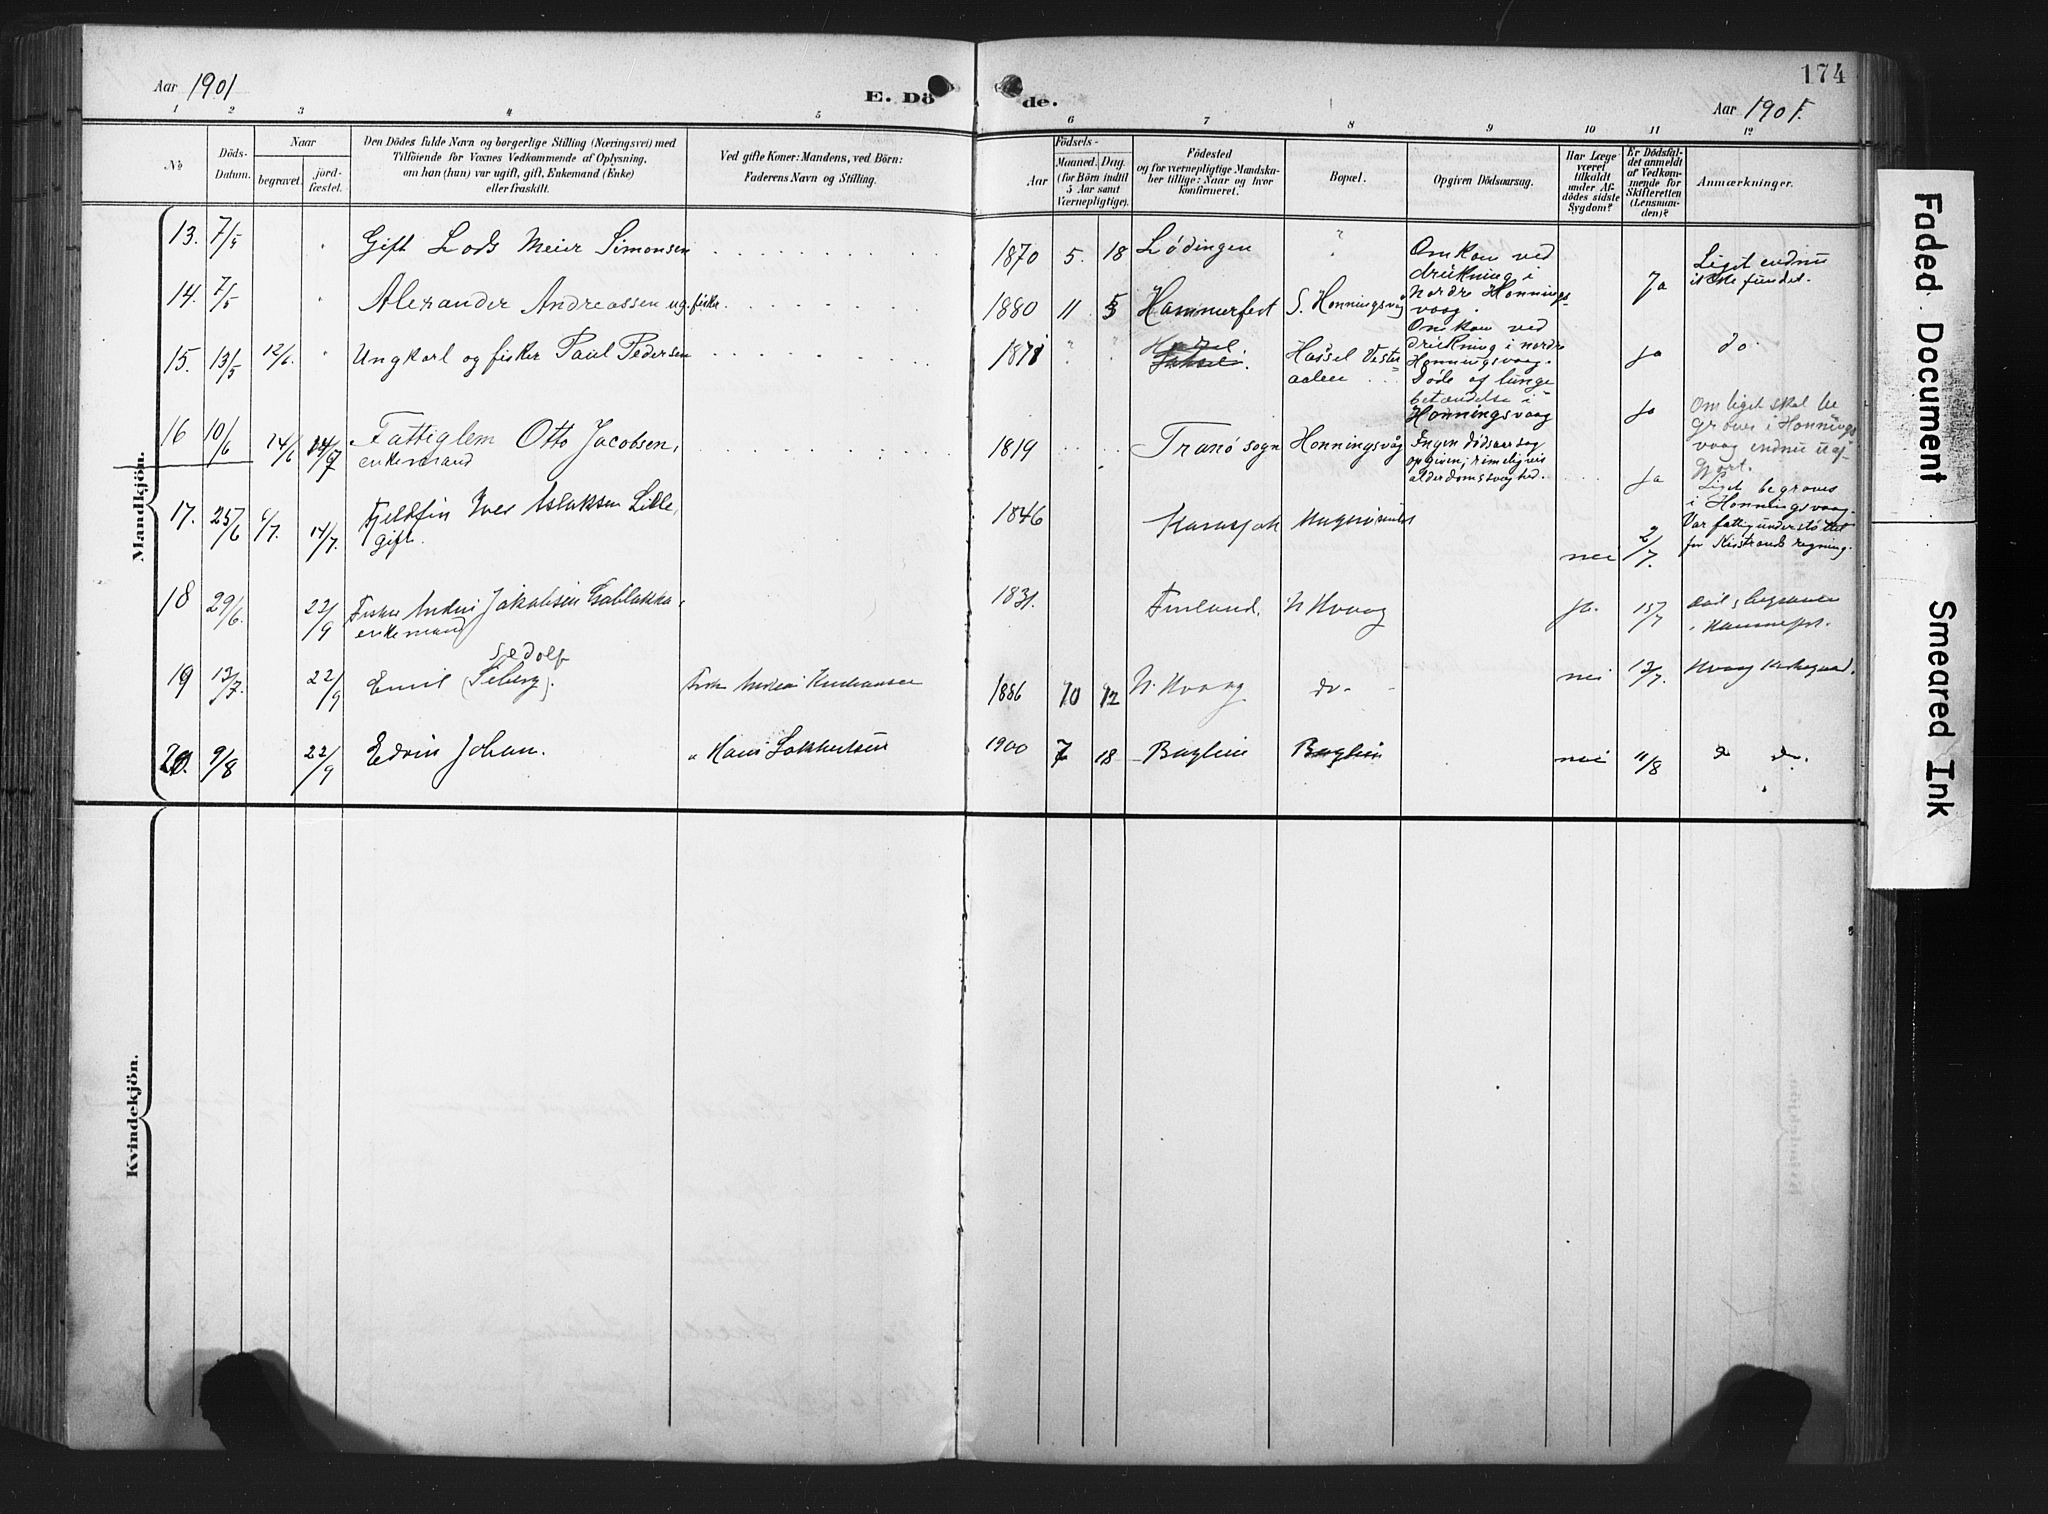 Aar 1901
E. Dö
de.
174
Aar 1901.
1 2 3 4 5 6 7 8 9 10 11 12
No
Döds-
Datum.
Naar
begravet.
jord-
fæstet.
Den Dödes fulde Navn og borgerlige Stilling (Næringsvei) med
Tilföiende for Voxnes Vedkommende af Oplysning,
om han (hun) var ugift, gift, Enkemand (Enke)
eller fraskilt.
Ved gifte Koner: Mandens, ved Börn:
Faderens Navn og Stilling.
Födsels-
Aar
Maaned.
Dag.
(for Börn indtil
5 Aar samt
Værnepligtige).
Födested
og for værnepligtige Mandska-
ber tillige: Naar og hvor
konfirmeret.
Bopæl.
Opgiven Dödsaarsag.
Har Læge
været
tilkaldt
under Af-
dödes sidste
Sygdom?
Er Dödsfal-
det anmeldt
af Vedkom-
mende for
Skifteretten
(Lensman-
den)?
Anmærkninger.
Mandkjön.
13. 7/5 " Gift Lods Meier Simonsen 1870 5. 18 Lødingen "
Omkom ved
drikning i
Nordre Honnings-
vaag.
Liget endnu
ikke fundet.
14. 7/5 " Alexander Andreassen ug. fisker 1880 11 5 Hammerfest S. Honningsvåg
Omkom ved
drikning i nordre
Honningsvaag.
Ja
15. 13/5 12/6. Ungkarl og fisker Paul Pedersen 1871 " " Hassel Hassel Vester
aalen
Døde af lunge
betændelse i
Honningsvaag
ja do.
16 10/6 14/6 14/7 Fattiglem Otto Jacobsen,
enkemand
1819 Tranö sogn Honningsvåg
Ingen dødsaarsag
opgiven; rimeligvis
alderdomssvaghed.
Ja
Om liget skal be
graves i Honnings
vaag endnu uaf
gjort.
17. 25/6 1/7. 14/7. Fjeldfin Iver Aslaksen Lille,
gift.
1846 Karasjok nei 2/7.
Ja
Liget begraves
i Honningsvaag.
Var fattigunderstøttet
for Kistrands regning.
18 29/6. 22/9 Fisker Jakobsen
enkemand
1831. Finland. N Hvaag ja. 15/7
Hammerfest.
19 13/7. 22/9 Emil Sedolf
(Siberg).
Fisker 1886 10 12 N. Hvaag do. nei 13/7. Hvaag Kirkegaard.
20. 9/8 22/9 Edvin Johan. " Hans 1900 7 18 nei 11/8 d do.
Kvindekjön.
Faded Document
Smeared Ink